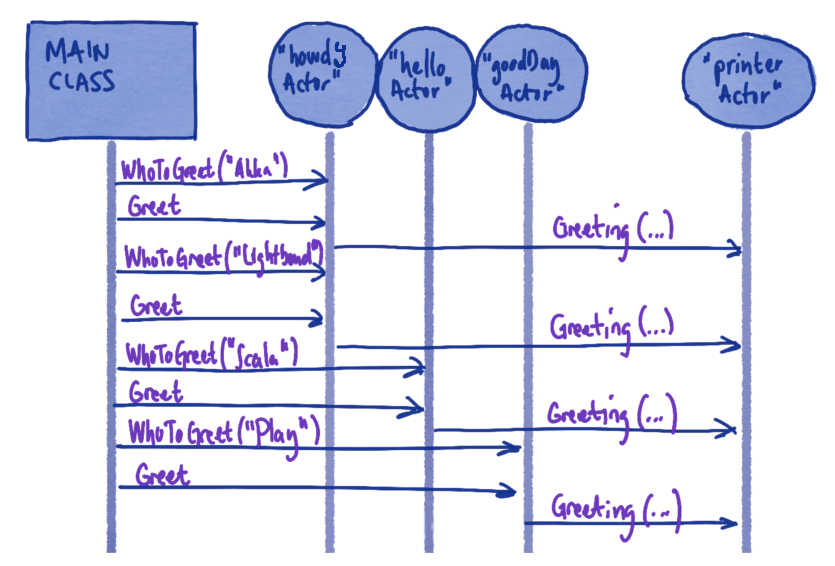 MAIN
CLASS
"howdy
Actor"
"hello
Actor"
"goodDay
Actor"
"printer
Actor"
WhoToGreet("Akka")
Greet
Greeting (...)
WhoToGreet("Lightbend")
Greet
Greeting (...)
WhoToGreet("Scala")
Greet
Greeting (...)
WhoToGreet("Play")
Greet
Greeting (...)